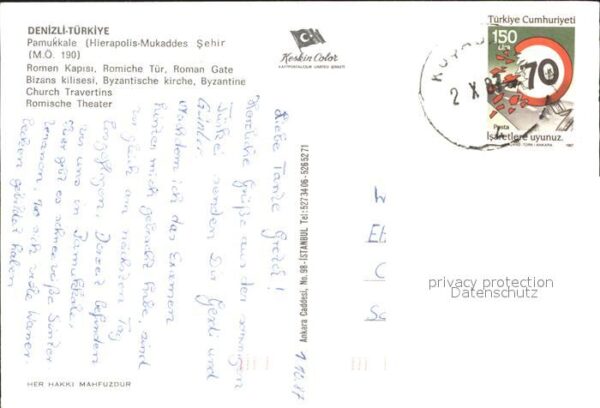 DENIZLI-TÜRKİYE
Pamukkale (Hierapolis-Mukaddes Şehir
(M.Ö. 190)
Romen Kapısı, Romiche Tür, Roman Gate
Bizans kilisesi, Byzantische kirche, Byzantine
Church Travertins
Romische Theater
Keskin Color
KARTPOSTALCILIK LIMITED ŞİRKETİ
Türkiye Cumhuriyeti
150
LİRA
70
Posta
İşaretlere uyunuz.
1987
2 X 87
Liebe Tante Gretl!
Herzliche Grüße aus der sonnigen
Türkei senden Dir Gerdi und
Günter.
Nachdem ich das Examen
hinter mich gebracht habe, sind
wir gleich am nächsten Tag
losgeflogen. Derzeit befinden
wir uns in Pamukkale,
hier gibt es schneeweiße Sinter-
terrassen, wo sich viele Wasser-
becken gebildet haben.
1.10.87
Ankara Caddesi, No. 98-İSTANBUL Tel: 5273406-5265271
privacy protection
Datenschutz
HER HAKKI MAHFUZDUR